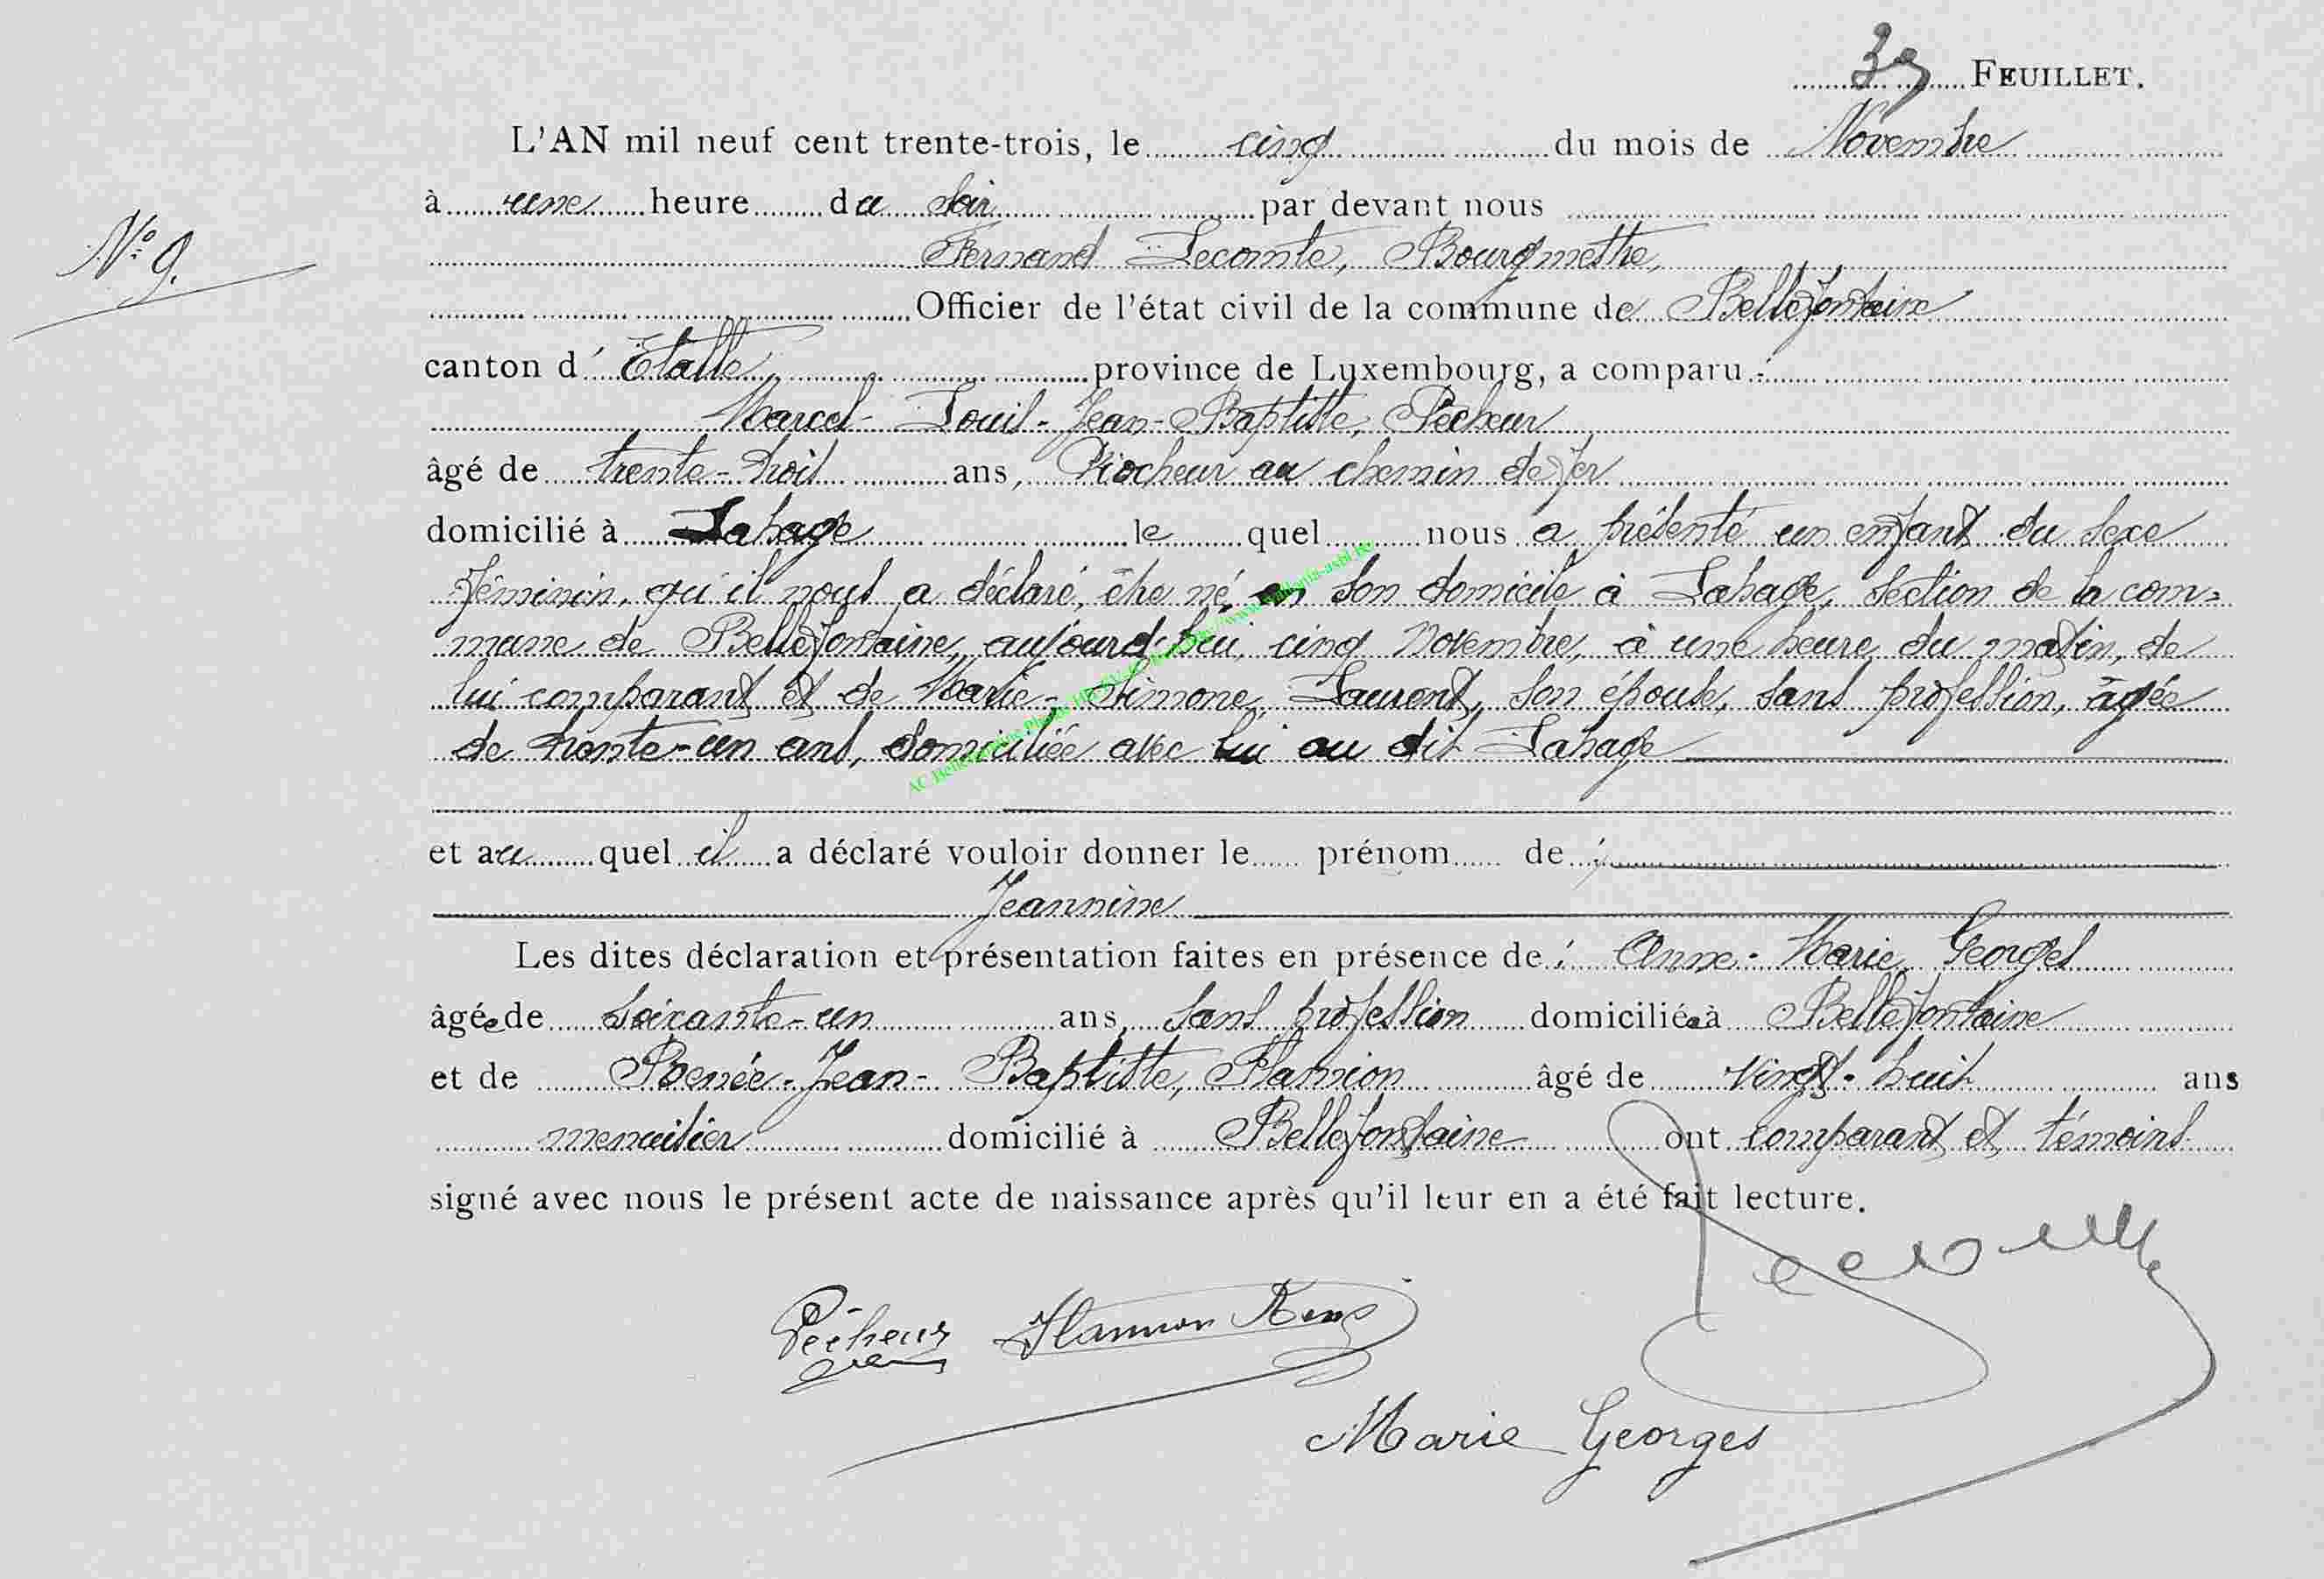 FEUILLET.
L'AN mil neuf cent trente-trois, le cinq du mois de Novembre
à une heure du soir par devant nous
Nº 9.
Fernand Lecomte, Bourgmestre,
Officier de l'état civil de la commune de Bellefontaine
canton d'Etalle, province de Luxembourg, a comparu :
Marcel-Louis-Jean-Baptiste, Pêcheur
âgé de trente-trois ans, Piocheur au chemin de fer
domicilié à Lahage le quel nous a présenté un enfant du sexe
féminin, qu'il nous a déclaré, être né, en son domicile à Lahage, section de la com=
mune de Bellefontaine, aujourd'hui, cinq Novembre, à une heure du matin, de
lui comparant et de Marie-Simone, Laurent, son épouse, sans profession, âgée
de trente-un ans, domiciliée avec lui au dit Lahage
et au quel il a déclaré vouloir donner le prénom de :
Jeannine
Les dites déclaration et présentation faites en présence de : Anne-Marie Georges
âgée de soixante-un ans, sans profession domiciliée à Bellefontaine
et de Renée-Jean-Baptiste, Flamion âgé de vingt-huit ans
menuisier domicilié à Bellefontaine ont comparant et témoins
signé avec nous le présent acte de naissance après qu'il leur en a été fait lecture.
Pêcheur
Marie Georges